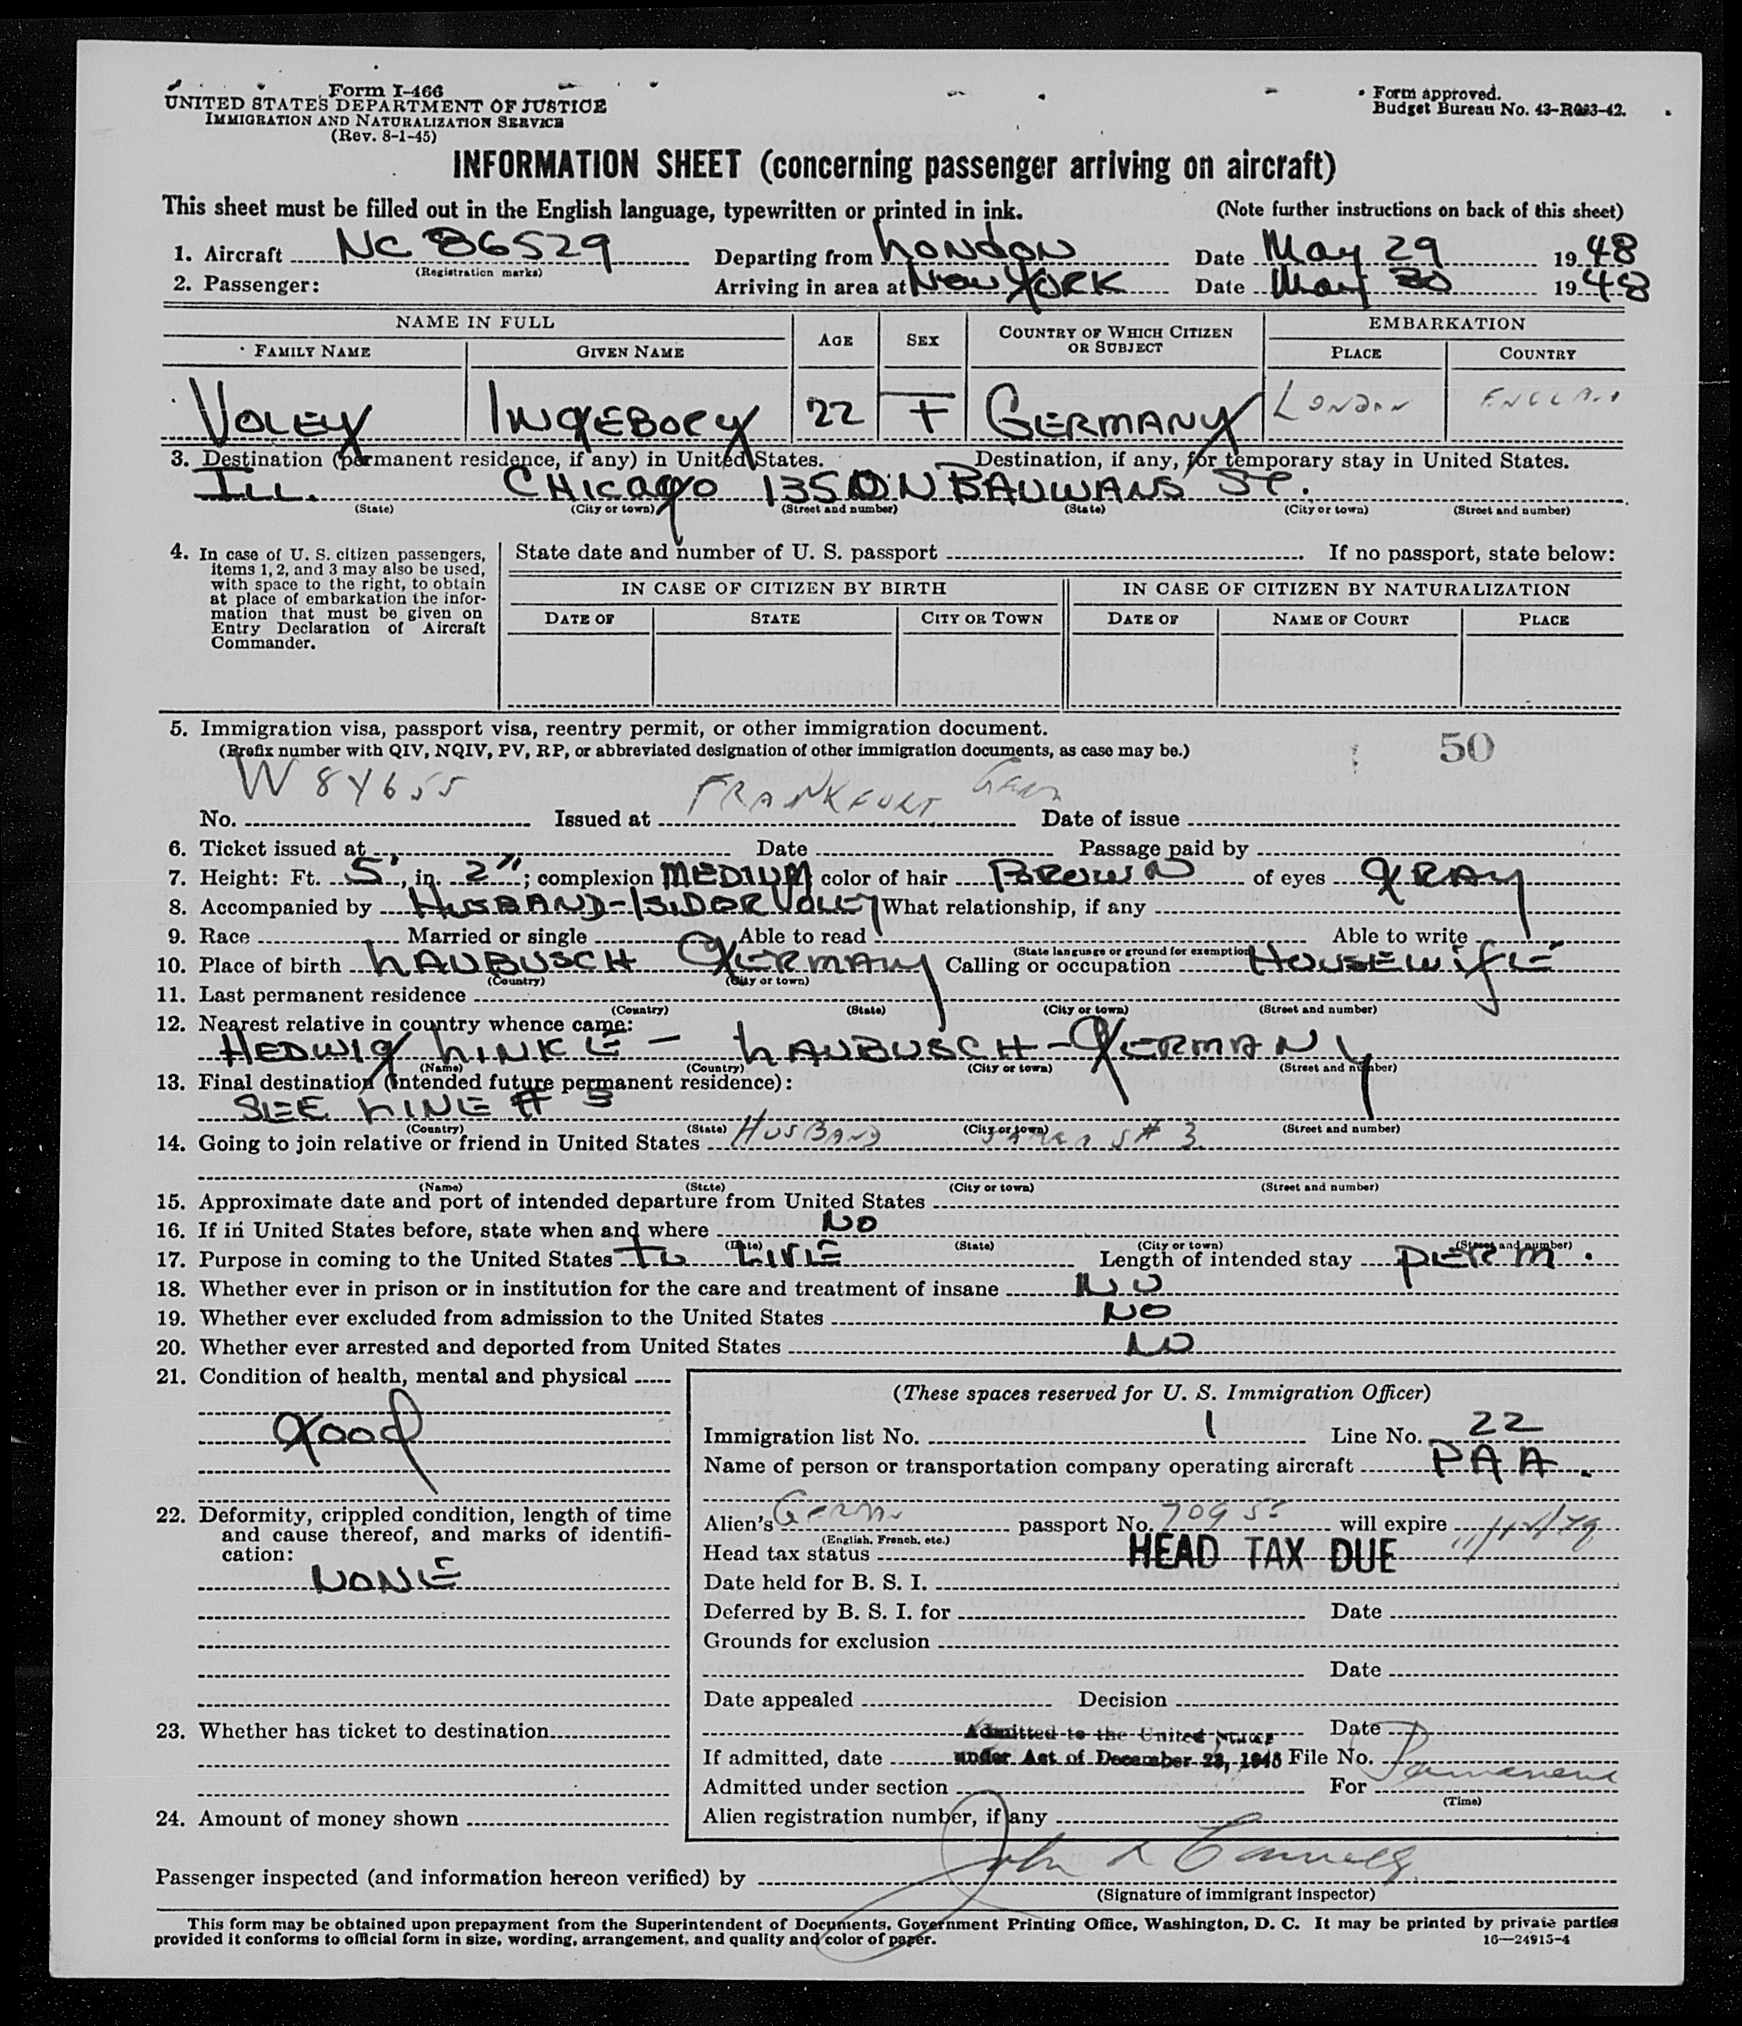 Form I-466
UNITED STATES DEPARTMENT OF JUSTICE
IMMIGRATION AND NATURALIZATION SERVICE
(Rev. 8-1-45)
Form approved.
Budget Bureau No. 43-R083-42.
INFORMATION SHEET (concerning passenger arriving on aircraft)
This sheet must be filled out in the English language, typewritten or printed in ink. (Note further instructions on back of this sheet)
1. Aircraft NC 86529 Departing from London Date May 29 1948
(Registration marks)
2. Passenger: Arriving in area at New York Date May 30 1948
NAME IN FULL AGE SEX COUNTRY OF WHICH CITIZEN OR SUBJECT EMBARKATION
FAMILY NAME GIVEN NAME PLACE COUNTRY
VOLEY INGEBORG 22 F GERMANY LONDON ENGLAND
3. Destination (permanent residence, if any) in United States. Destination, if any, for temporary stay in United States.
ILL. CHICAGO 1350 N ST.
(State) (City or town) (Street and number) (State) (City or town) (Street and number)
4. In case of U. S. citizen passengers, items 1, 2, and 3 may also be used, with space to the right, to obtain at place of embarkation the information that must be given on Entry Declaration of Aircraft Commander.
State date and number of U. S. passport If no passport, state below:
IN CASE OF CITIZEN BY BIRTH IN CASE OF CITIZEN BY NATURALIZATION
DATE OF STATE CITY OR TOWN DATE OF NAME OF COURT PLACE
5. Immigration visa, passport visa, reentry permit, or other immigration document.
(Prefix number with QIV, NQIV, PV, RP, or abbreviated designation of other immigration documents, as case may be.) 50
No. W 84655 Issued at FRANKFURT Germ Date of issue
6. Ticket issued at Date Passage paid by
7. Height: Ft. 5', in. 2"; complexion MEDIUM color of hair BROWN of eyes GRAY
8. Accompanied by HUSBAND-ISIDOR VOLEY What relationship, if any
9. Race Married or single Able to read Able to write
(State language or ground for exemption)
10. Place of birth LAUBUSCH GERMANY Calling or occupation HOUSEWIFE
(Country) (City or town)
11. Last permanent residence
(Country) (State) (City or town) (Street and number)
12. Nearest relative in country whence came:
HEDWIG LINKE - LAUBUSCH-GERMANY
(Name) (Country) (City or town) (Street and number)
13. Final destination (intended future permanent residence):
SEE LINE # 3
(Country) (State) (City or town) (Street and number)
14. Going to join relative or friend in United States HUSBAND SAME AS # 3
(Name) (State) (City or town) (Street and number)
15. Approximate date and port of intended departure from United States
16. If in United States before, state when and where NO
(Date) (State) (City or town) (Street and number)
17. Purpose in coming to the United States TO LIVE Length of intended stay PERM.
18. Whether ever in prison or in institution for the care and treatment of insane NO
19. Whether ever excluded from admission to the United States NO
20. Whether ever arrested and deported from United States NO
21. Condition of health, mental and physical
GOOD
22. Deformity, crippled condition, length of time and cause thereof, and marks of identification:
NONE
23. Whether has ticket to destination
24. Amount of money shown
(These spaces reserved for U. S. Immigration Officer)
Immigration list No. 1 Line No. 22
Name of person or transportation company operating aircraft PAA.
Alien's German passport No. 70955 will expire
(English, French, etc.)
Head tax status HEAD TAX DUE
Date held for B. S. I.
Deferred by B. S. I. for Date
Grounds for exclusion
Date
Date appealed Decision
Admitted to the United States Date
If admitted, date under Act of December 28, 1945 File No.
Admitted under section For Permanent
(Time)
Alien registration number, if any
Passenger inspected (and information hereon verified) by John
(Signature of immigrant inspector)
This form may be obtained upon prepayment from the Superintendent of Documents, Government Printing Office, Washington, D. C. It may be printed by private parties
provided it conforms to official form in size, wording, arrangement, and quality and color of paper. 16—24915-4